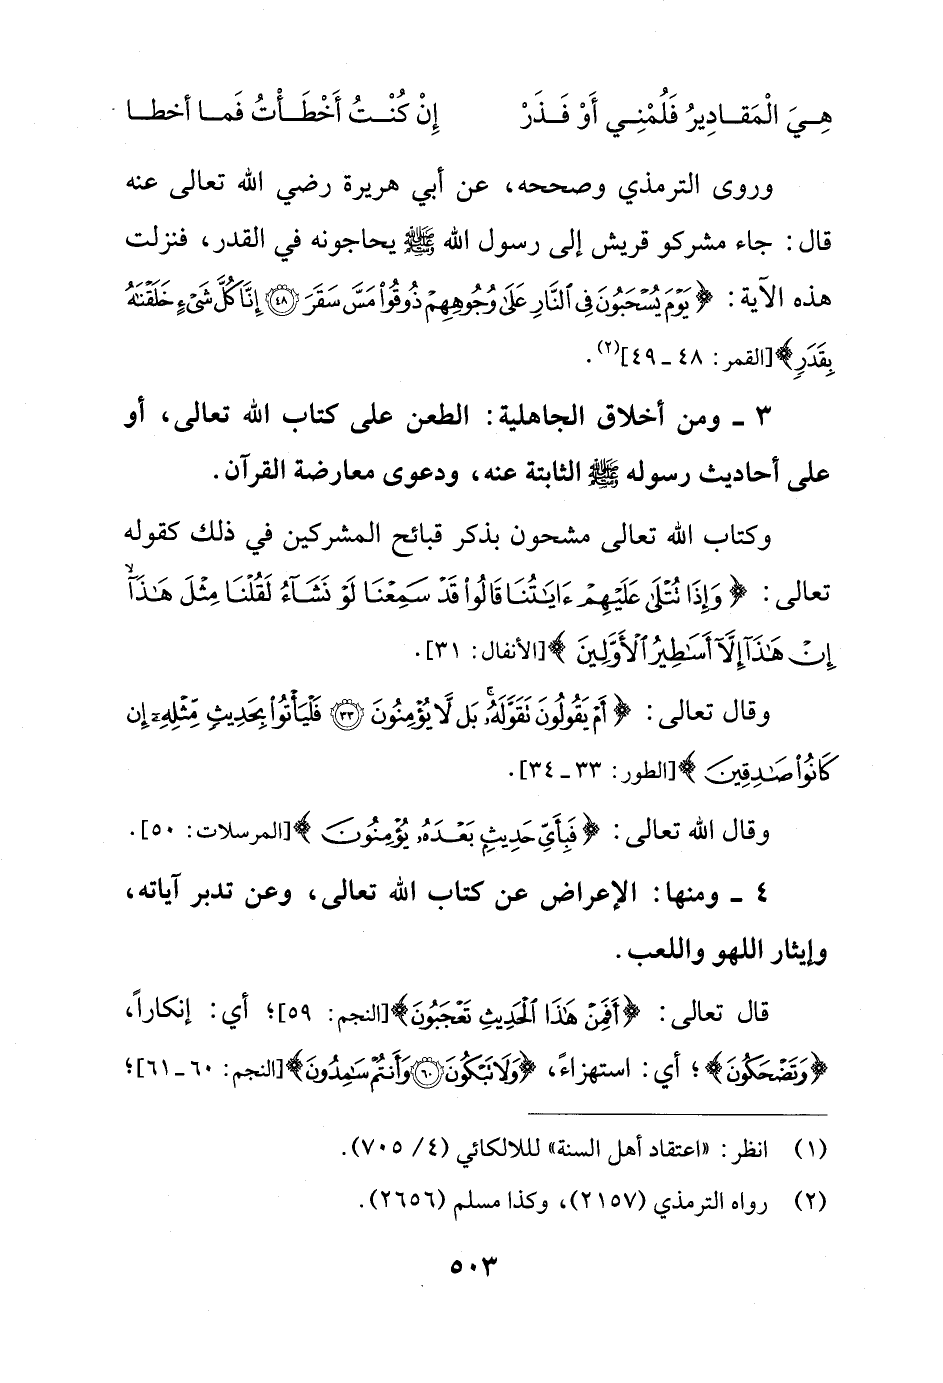 هِيَ الْمَقَادِيرُ فَلُمْنِي أَوْ فَذَرْ إِنْ كُنْتُ أَخْطَأْتُ فَما أخطا
وروى الترمذي وصححه، عن أبي هريرة رضي الله تعالى عنه
قال: جاء مشركو قريش إلى رسول الله ﷺ يحاجونه في القدر، فنزلت
هذه الآية: ﴿يَوْمَ يُسْحَبُونَ فِي ٱلنَّارِ عَلَىٰ وُجُوهِهِمْ ذُوقُوا۟ مَسَّ سَقَرَ ٤٨ إِنَّا كُلَّ شَىْءٍ خَلَقْنَـٰهُ
بِقَدَرٍ﴾ [القمر: ٤٨ ـ ٤٩](٢).
٣ ـ ومن أخلاق الجاهلية: الطعن على كتاب الله تعالى، أو
على أحاديث رسوله ﷺ الثابتة عنه، ودعوى معارضة القرآن.
وكتاب الله تعالى مشحون بذكر قبائح المشركين في ذلك كقوله
تعالى: ﴿وَإِذَا تُتْلَىٰ عَلَيْهِمْ ءَايَـٰتُنَا قَالُوا۟ قَدْ سَمِعْنَا لَوْ نَشَآءُ لَقُلْنَا مِثْلَ هَـٰذَآ ۙ
إِنْ هَـٰذَآ إِلَّآ أَسَـٰطِيرُ ٱلْأَوَّلِينَ﴾ [الأنفال: ٣١].
وقال تعالى: ﴿أَمْ يَقُولُونَ تَقَوَّلَهُۥ ۚ بَل لَّا يُؤْمِنُونَ ٣٣ فَلْيَأْتُوا۟ بِحَدِيثٍ مِّثْلِهِۦٓ إِن
كَانُوا۟ صَـٰدِقِينَ﴾ [الطور: ٣٣ ـ ٣٤].
وقال الله تعالى: ﴿فَبِأَىِّ حَدِيثٍۭ بَعْدَهُۥ يُؤْمِنُونَ﴾ [المرسلات: ٥٠].
٤ ـ ومنها: الإعراض عن كتاب الله تعالى، وعن تدبر آياته،
وإيثار اللهو واللعب.
قال تعالى: ﴿أَفَمِنْ هَـٰذَا ٱلْحَدِيثِ تَعْجَبُونَ﴾ [النجم: ٥٩]؛ أي: إنكاراً،
﴿وَتَضْحَكُونَ﴾؛ أي: استهزاءً، ﴿وَلَا تَبْكُونَ ٦٠ وَأَنتُمْ سَـٰمِدُونَ﴾ [النجم: ٦٠ ـ ٦١]؛
(١) انظر: «اعتقاد أهل السنة» لللالكائي (٤/ ٧٠٥).
(٢) رواه الترمذي (٢١٥٧)، وكذا مسلم (٢٦٥٦).
٥٠٣